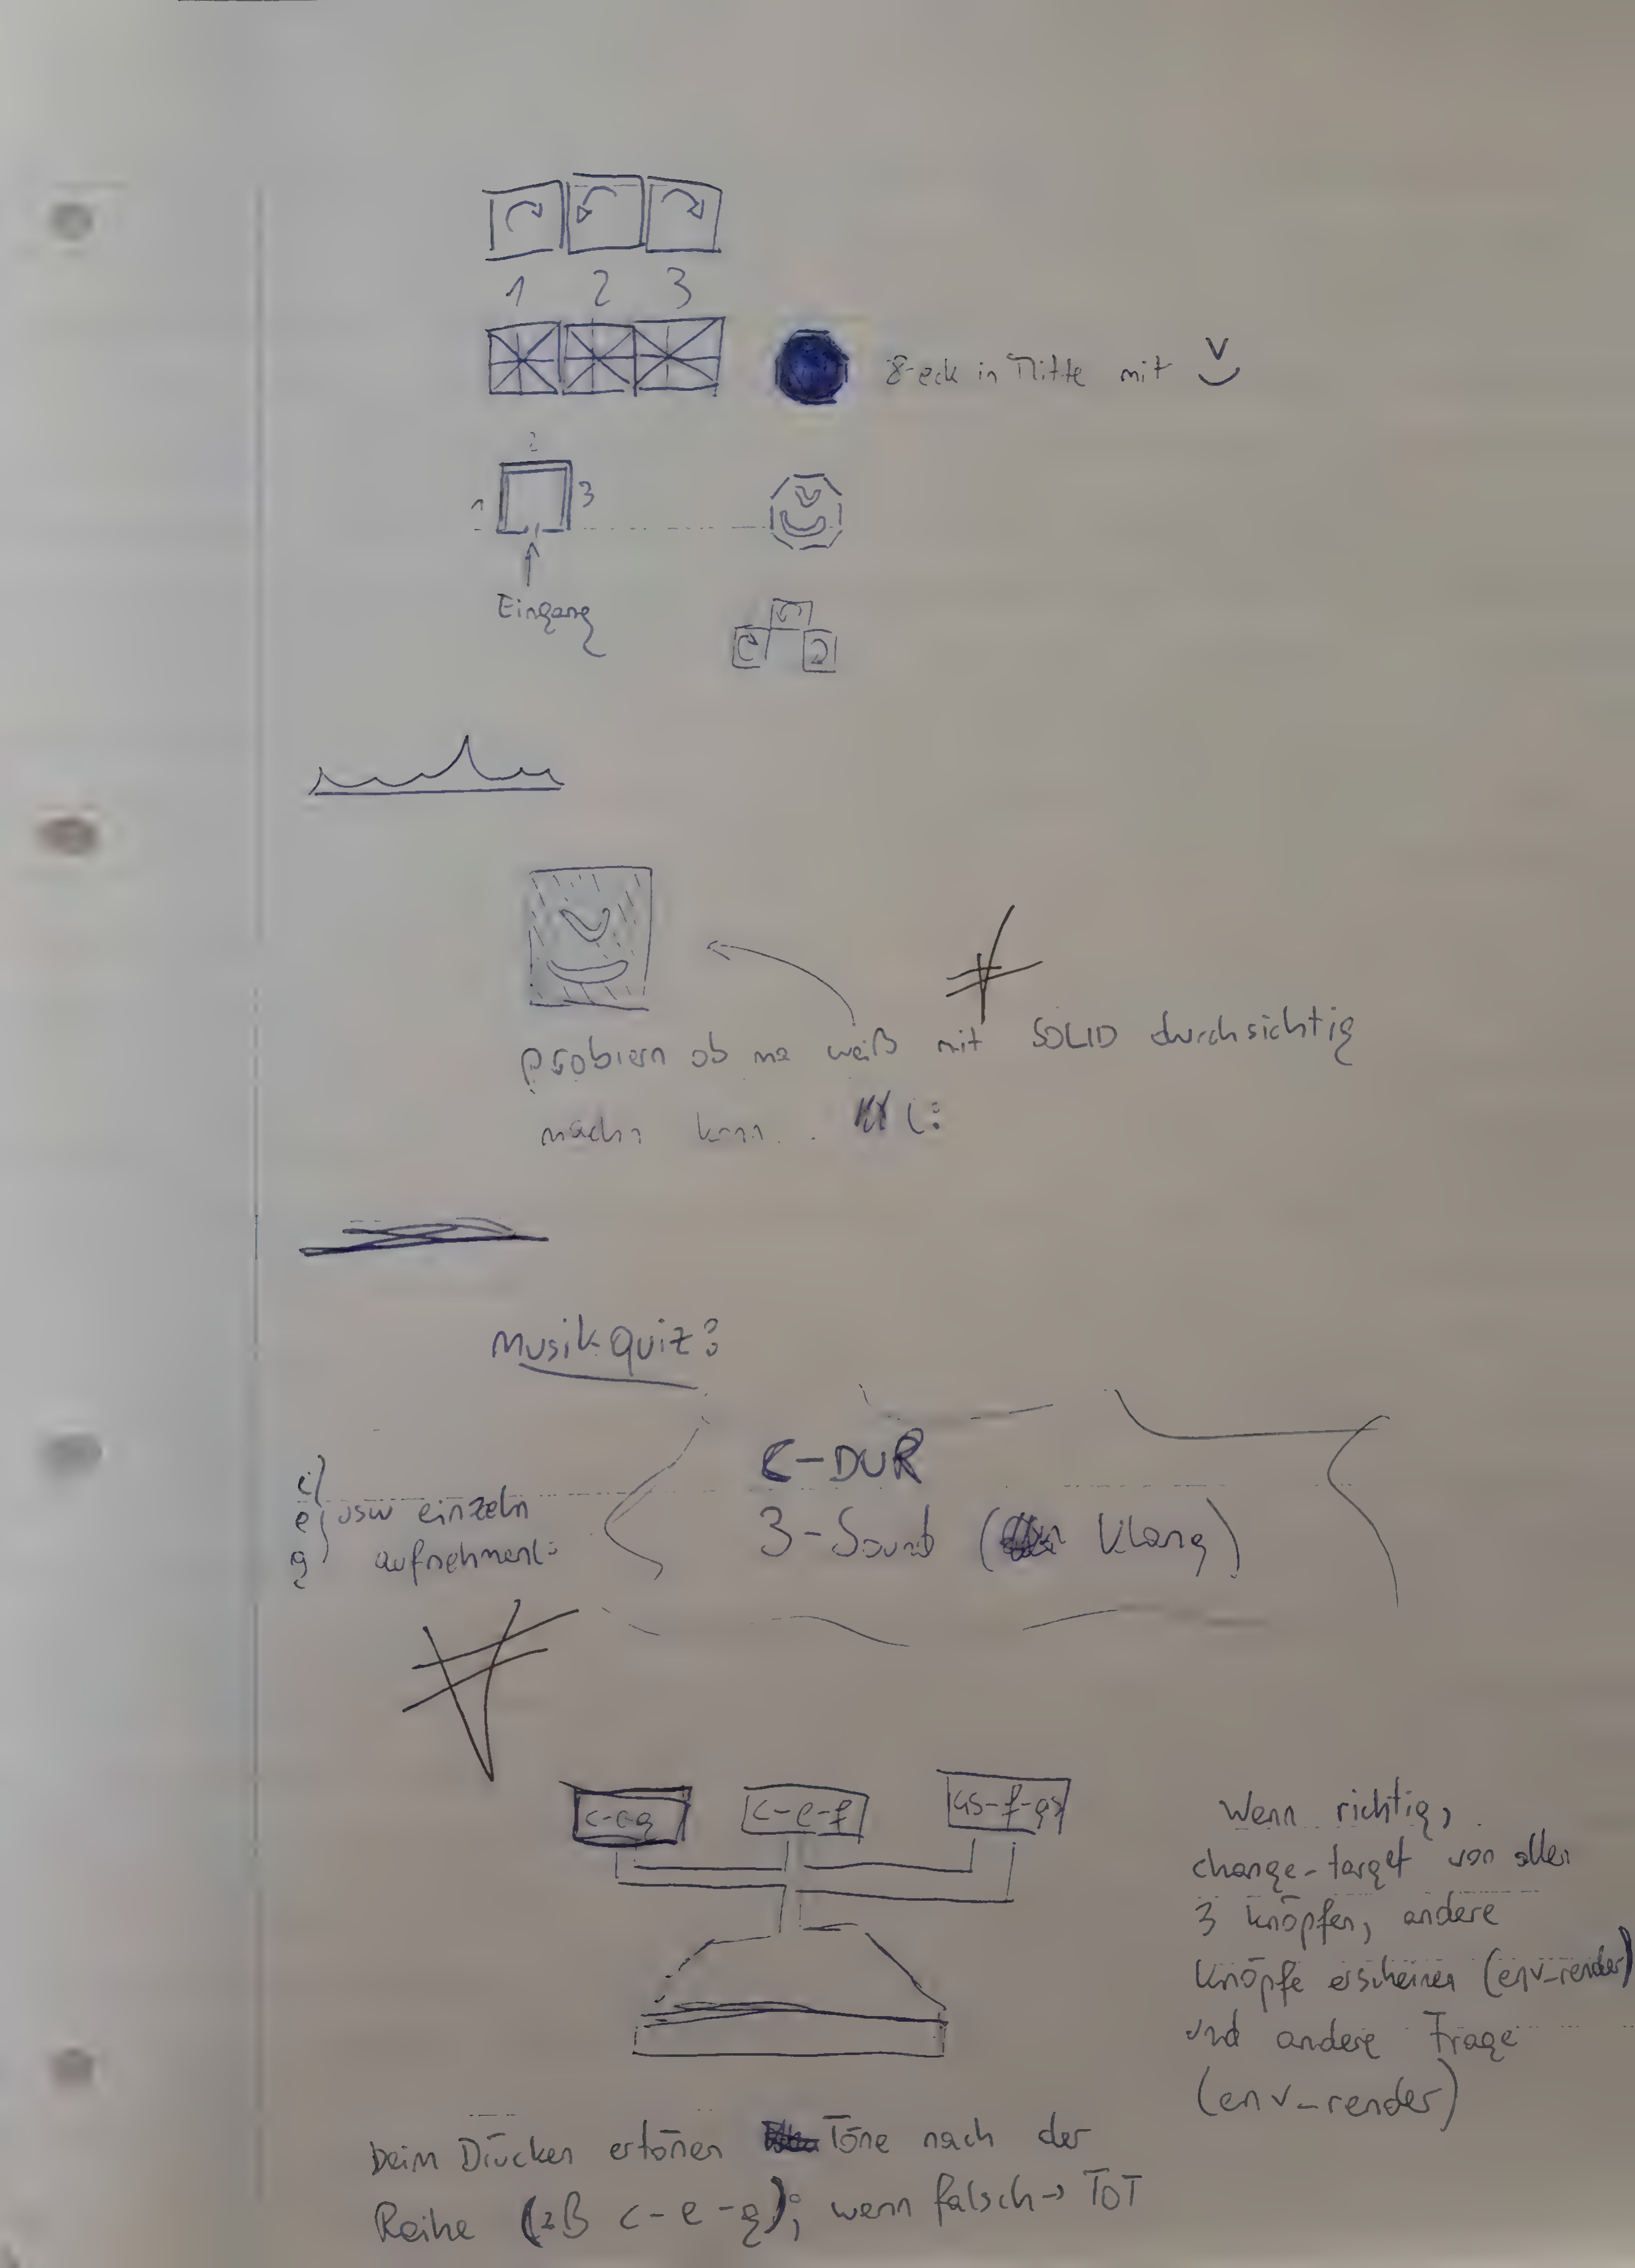 1 2 3
8-eck in Mitte mit
2
1 3
Eingang
probiern ob ma weiß mit SOLID durchsichtig
machn kann. (:
Musik Quiz:
C-DUR
3-Sound (Klang)
c
e
g
usw einzeln
aufnehmen(:
c-e-g
c-e-f
-f-gs
Wenn richtig,
change-target von allen
3 Knöpfen, andere
Knöpfe erscheinen (env_render)
und andere Frage
(env_render)
beim Drücken ertönen Töne nach der
Reihe (zB c-e-g); wenn falsch→ TOT